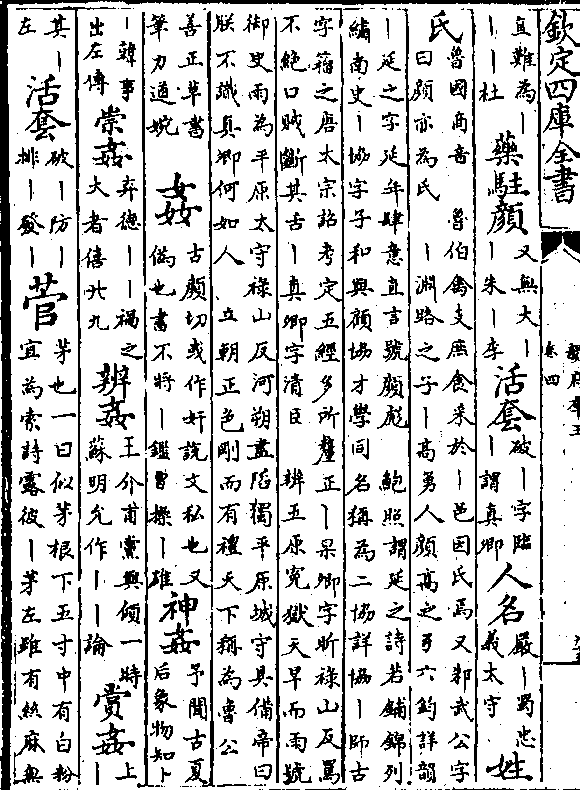 欽定四庫全書
卷四
直難為｜
｜｜杜
藥駐顔
又無大｜
｜朱｜李
活套
破｜字臨
｜謂真卿
人名
嚴｜蜀忠
義太守
姓
氏
魯國商音　魯伯禽支庶食采於｜邑因氏焉又邾武公字
曰顔亦為氏　｜淵路之子｜高勇人顔高之弓六鈞詳韻
｜延之字延年肆意直言號顔彪　鮑照謂延之詩若鋪錦列
繡南史｜協字子和與顧協才學同名稱為二協詳協｜師古
字籀之唐太宗詔考定五經多所釐正｜杲卿字昕禄山反罵
不絶口賊斷其舌｜真卿字清臣　辨五原寃獄天旱而雨號
御史雨為平原太守禄山反河朔盡陷獨平原城守具備帝曰
朕不識真卿何如人　立朝正色剛而有禮天下稱為魯公
善正草書
筆力遒婉
姦
古顔切或作奸說文私也又
偽也書不將｜鑑曹操｜雄
神姦
予聞古夏
后象物知｜
｜韓事
出左傳
崇姦
弃德｜｜禍之
大者僖廿九
辨姦
王介甫黨與傾一時
蘇明允作｜｜論
賞姦
上
｜
其｜
左
活套
破｜防｜
排｜發｜
菅
茅也一曰似茅根下五寸中有白粉
宜為索詩露彼｜茅左雖有絲麻無